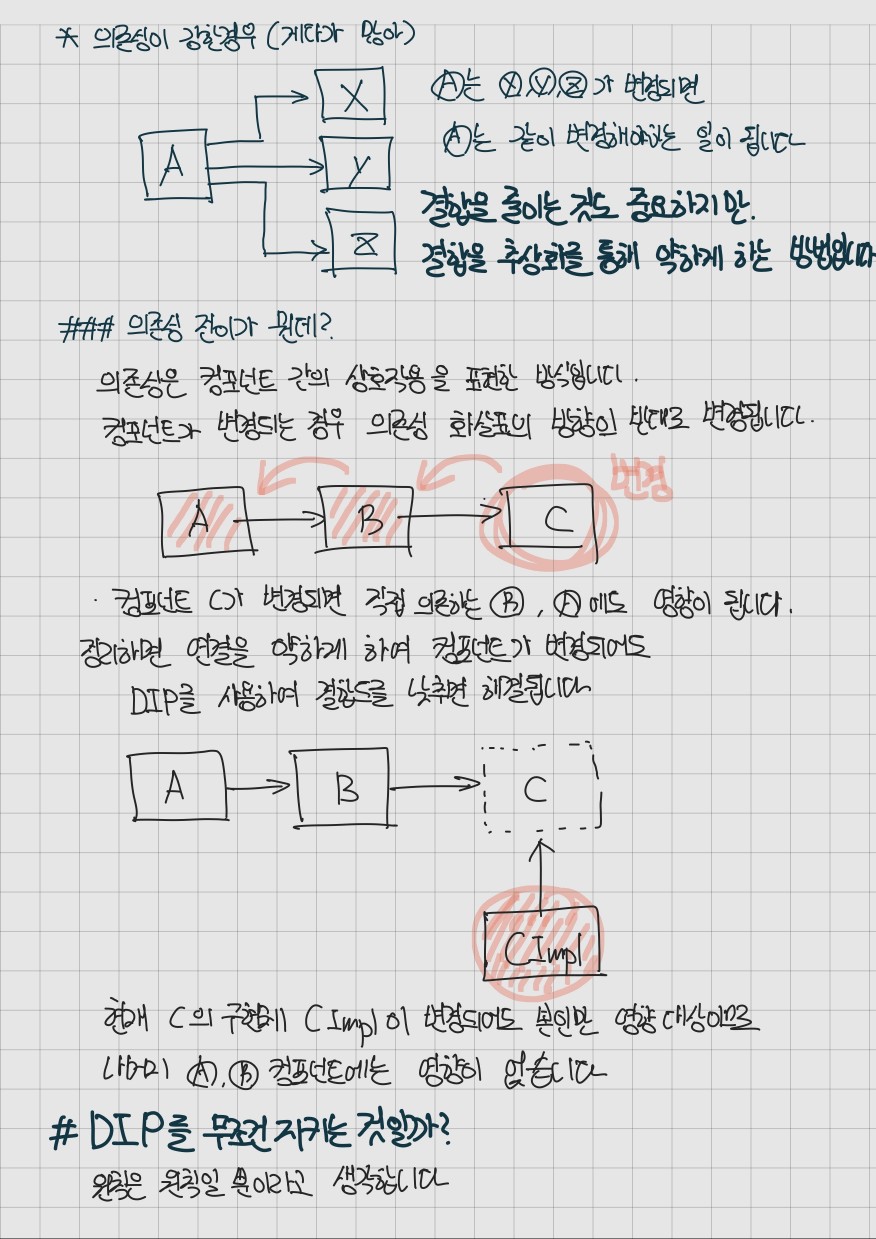 * 의존성이 강한경우 (게다가 많아)
X
A
Y
Z
Ⓐ는 Ⓧ,Ⓨ,Ⓩ가 변경되면
Ⓐ는 같이 변경해야하는 일이 됩니다
결합을 줄이는 것도 중요하지만.
결합을 추상화를 통해 약하게 하는 방법입니다
### 의존성 전이가 뭔데?
의존성은 컴포넌트 간의 상호작용을 표현한 방식입니다.
컴포넌트가 변경되는 경우 의존성 화살표의 방향의 반대로 변경됩니다.
변경
A B C
· 컴포넌트 C가 변경되면 직접 의존하는 Ⓑ, Ⓐ에도 영향이 됩니다.
정리하면 연결을 약하게 하여 컴포넌트가 변경되어도
DIP를 사용하여 결합도를 낮추면 해결됩니다
A B C
CImpl
현재 C의 구현체 CImpl이 변경되어도 본인만 영향 대상이므로
나머지 Ⓐ,Ⓑ 컴포넌트에는 영향이 없습니다
# DIP를 무조건 지키는 것일까?
원칙은 원칙일 뿐이라고 생각합니다